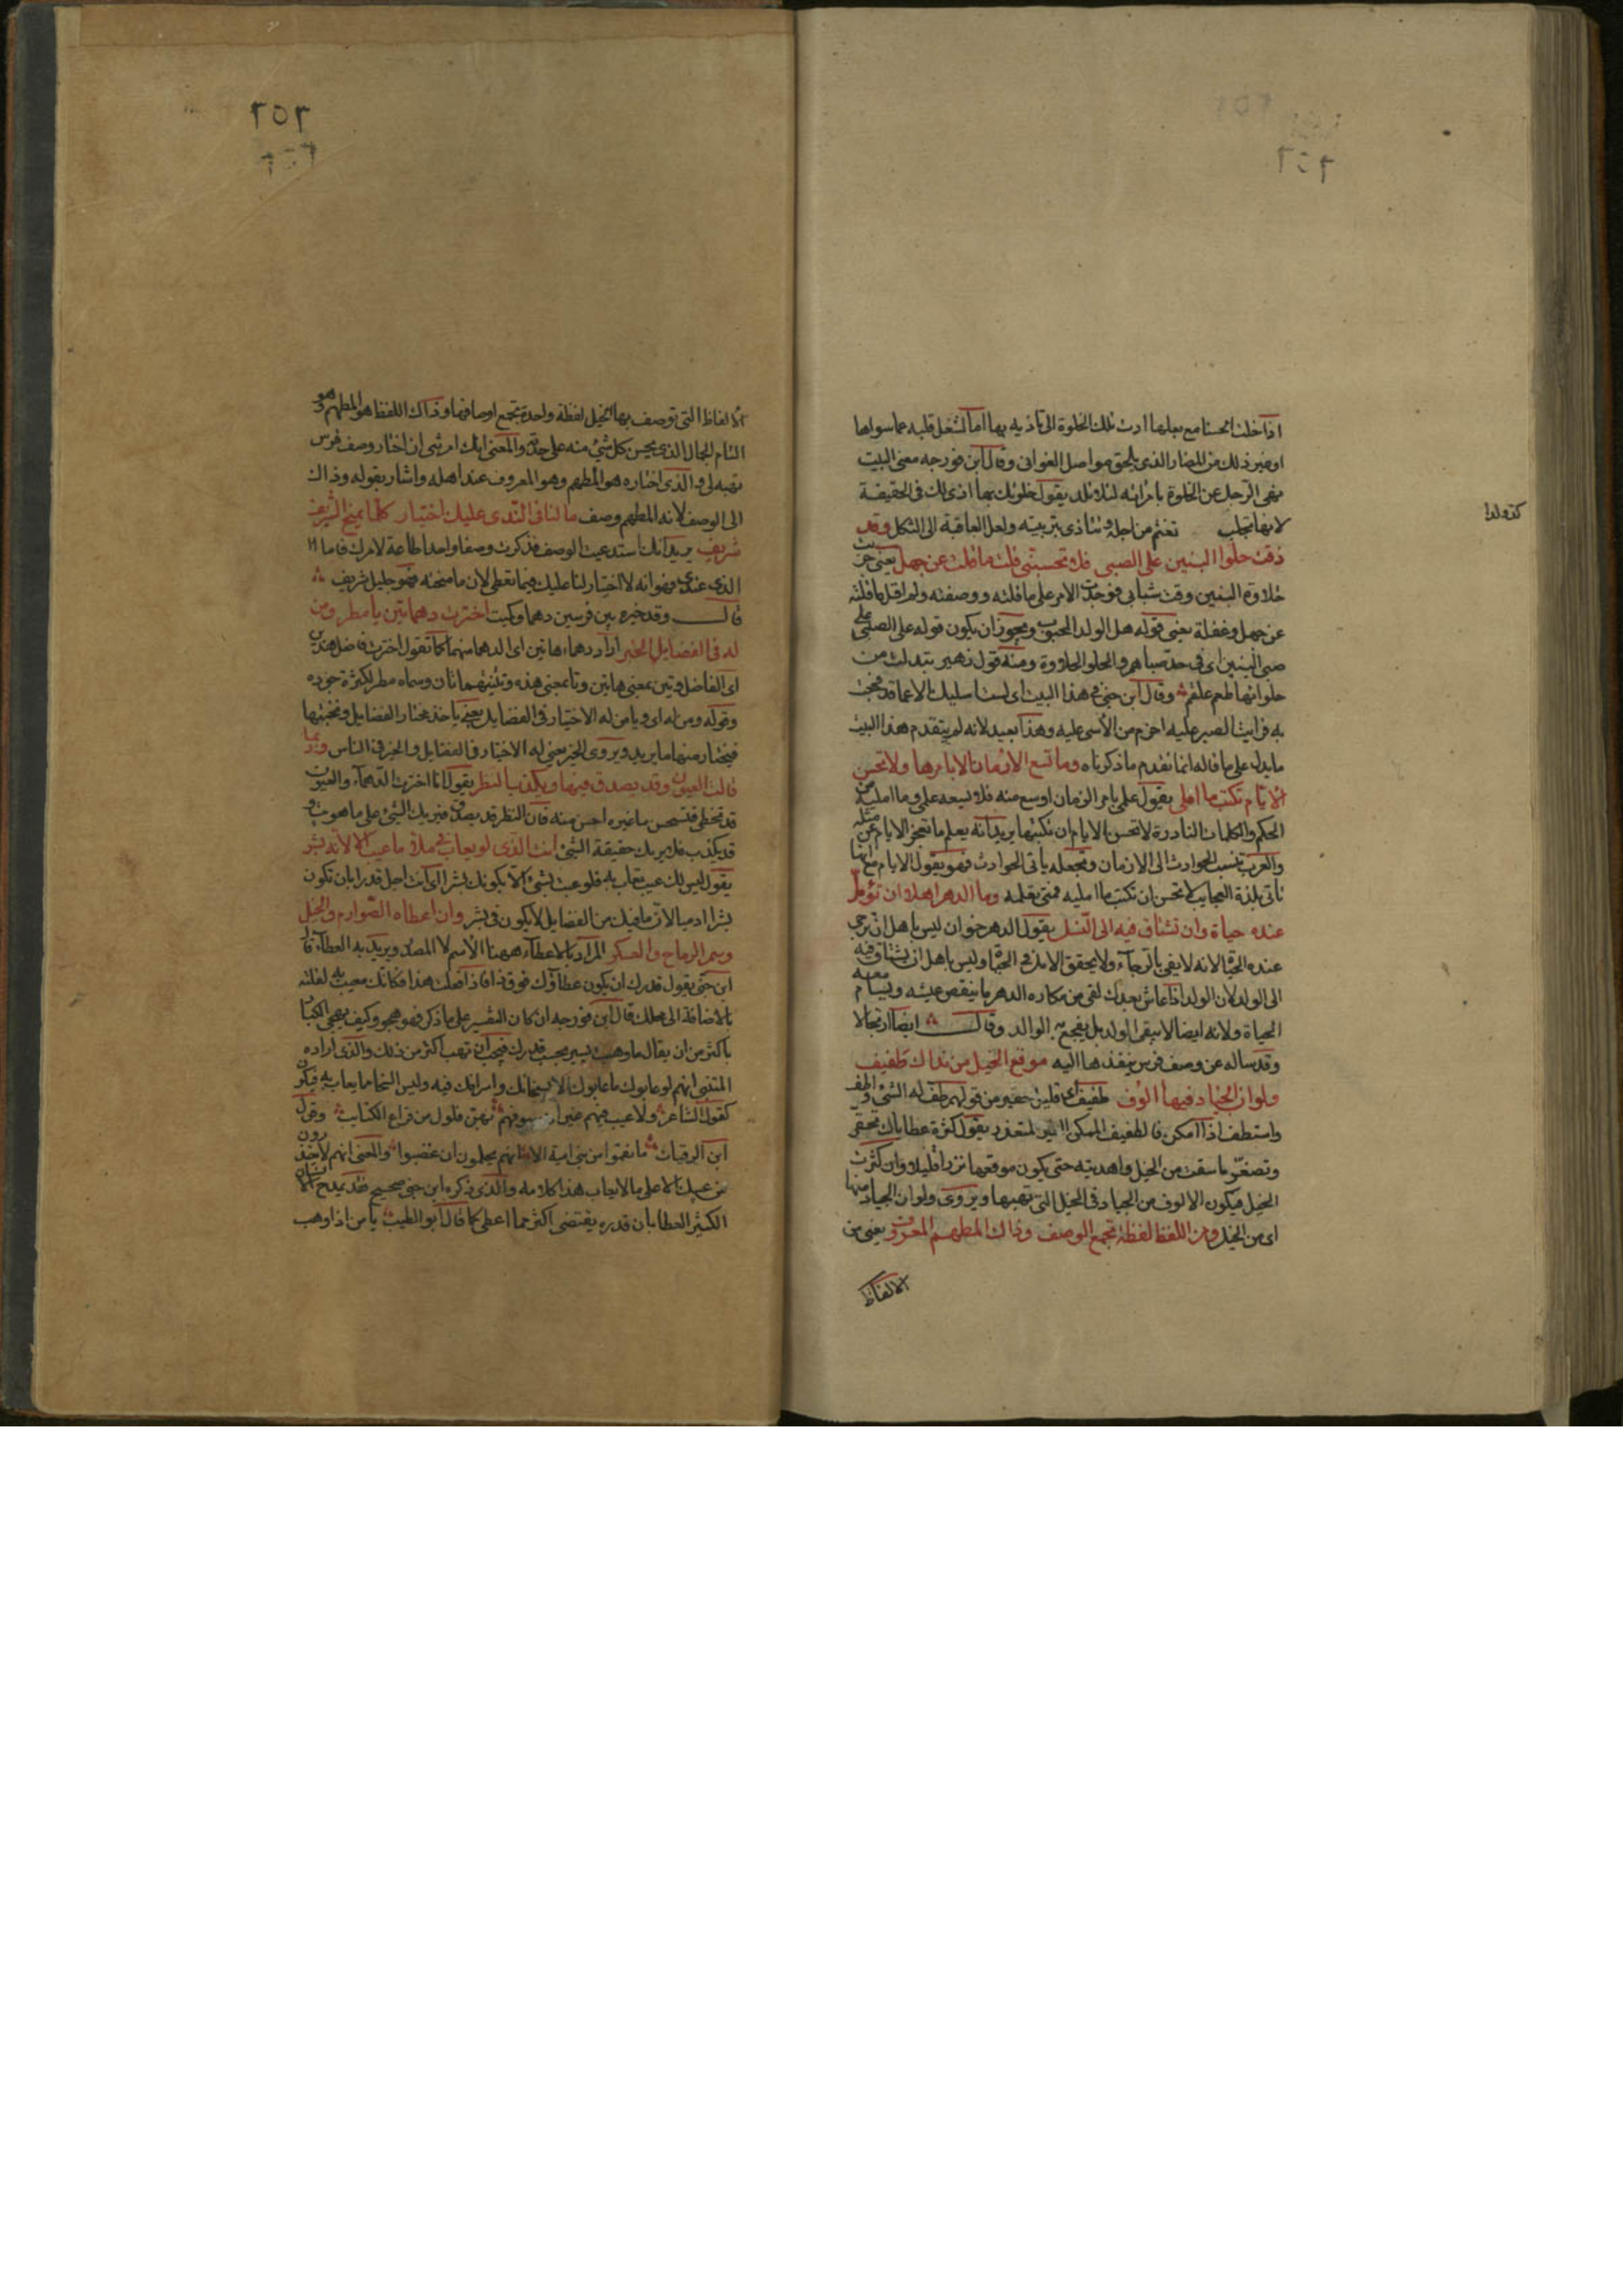 اذا خلت الحسنا مع بعلها ادت تلك الخلوة الى تاذيه بها اما لشغل قلبه عما سواها
او غير ذلك من المضار الذى يلحق مواصل الغوانى وقال ابن فورجه معنى البيت
نهى الرجل عن الخلوة بامراته لئلا تلد يقول خلوتك بها اذى لك فى الحقيقة
لانها تجلب تغتم من اجله وتتاذى بتربيته ولعل العاقبة الى الثكل وقد
كذ ولدا
ذقت حلوا البنين على الصبى فلا تحسبنى قلت ما قلت عن جهل يعنى جربت
حلاوة البنين وقت شبابى فوجدت الامر على ما قلته ووصفته ولم اقل ما قلته
عن جهل وغفلة يعنى قوله هل الولد المحبوب ويجوز ان يكون قوله على الصبى على
صبى البنين اى فى حدة صباهم والحلو الحلاوة ومنه قول زهير تبدلت من
حلوائها طعم علقم وقال ابن جنى فى هذا البيت اى لست اسليك الا عما قد فجعت
به فرايت الصبر عليه احزم من الاسى عليه وهذا بعيد لانه لم يتقدم هذا البيت
ما يدل على ما قاله انما تقدم ما ذكرناه وما تسع الازمان الا بامرها ولا تحسن
الايام تكتب ما املى يقول علمى بامر الزمان اوسع منه فلا يسعه على وما امليه من
الحكم والكلمات النادرة لا تحسن الايام ان تكتبها يريد انه يعلم ما تعجز الايام عن مثله
والعرب تنسب الحوادث الى الازمان وتجعله ياتى الحوادث فهو يقول الايام مع انها
تاتى بلذة العجايب لا تحسن ان تكتب ما امليه فمتى تعلمه وما الدهر اهلا ان تؤمل
عنده حياة وان تشتاق فيه الى النسل يقول الدهر خوان ليس باهل ان ترجى
عنده الحيوة لانه لا يفى بالرجآء ولا يحقق الامل فى الحيوة وليس باهل ان يشتاق فيه
الى الولد لان الولد اذا عاش بعدك لقى من مكاره الدهر ما ينقص عيشه ويسام معه
الحياة ولانه ايضا لا يبقى الولد بل يفجع به الوالد وقال ايضا ارتجالا
وقد ساله عن وصف فرس ينفذها اليه موقع الخيل من نداك طفيف
ولو ان الجياد فيها الوف طفيف اى قليل حقير من قولهم طف له الشئ واطف
واستطف اذا امكن فالطفيف الممكن الغير المتعذر يقول كثرة عطاياك تحقر
وتصغر ما سقت من الخيل واهديته حتى يكون موقعها نزرا قليلا وان كثرت
الخيل فيكون الالوف من الجياد فى الخيل التى تهبها ويروى ولو ان الجياد منها
اى من الخيل ومن اللفظ لفظة تجمع الوصف وذاك المطهم المعروف يعنى من
الالفاظ
٢٥٢
الالفاظ التى توصف بها الخيل لفظة واحدة تجمع اوصافها وذاك اللفظ هو المطهم وهو
التام الجمال الذى يحسن كل شئ منه على حدته والمعنى انك امرتنى ان اختار وصف فرس
تهبه لى والذى اختاره هو المطهم وهو المعروف عند اهله واشار بقوله وذاك
الى الوصف لانه المطهم وصف ما لنا فى الندى عليك اختيار كلما يمنح الشريف
شريف يريد انك استدعيت الوصف فذكرت وصفا واحدا طاعة لامرك فاما
الذى عندى فهو انه لا اختيار لنا عليك فيما تعطى لان ما منحته فهو جليل شريف
قال وقد خيره بين فرسين دهما وكميت اخترت دهماتين يا مطر ومن
له فى الفضايل الخير اراد دهماء هاتين اى الدهما منهما كما تقول اخترت فاضل هذين
اى الفاضل وتين بمعنى هاتين وتا بمعنى هذه وتثنيتهما تان وسماه مطر لكثرة جوده
وقوله ومن له اى ويا من له الاختيار فى الفضايل يعنى ياخذ مختار الفضايل ونخبتها
فيختار منها ما يريد ويروى الخبر يعنى له الاختيار فى الفضايل والخبر فى الناس وربما
قالت العيون وقد يصدق فيها ويكذب النظر يقول انا اخترت الدهمآء والعيون
قد تخطى فتستحسن ما غيره احسن منه فان النظر قد يصدق فيريك الشئ على ما هو به و
قد يكذب فلا يريك حقيقة الشئ انت الذى لو يعاب فى ملاء ما عيب الا لانه بشر
يقول ليس لك عيب تعاب به فلو عبت بشئ الا بكونك بشرا اى انت اجل قدرا بان تكون
بشرا ادميا لان ما فيك من الفضايل لا يكون فى بشر وان اعطاه الصوارم والخيل
وسمر الرماح والعسكر المراد بالاعطآء ههنا الاسم لا المصدر ويريد به العطآء قال
ابن جنى يقول قدرك ان يكون عطاؤك فوق ذا فاذا فعلت هذا فكانك معيب به لقلته
بالاضافة الى محلك قال ابن فورجه ان كان التفسير على ما ذكر فهو هجو وكيف يهجى الكبار
باكثر من ان يقال ما وهبت يسير بجنب قدرك فيجب ان تهب اكثر من ذلك والذى اراده
المتنبى انهم لو عابوك ما عابوك الا بسخائك واسرافك فيه وليس السخا مما يعاب به فيكون
كقول الشاعر ولا عيب فيهم غير ان سيوفهم بهن فلول من قراع الكتايب وقول
ابن الرقيات ما نقموا من بنى امية الا انهم يحلمون ان غضبوا والمعنى انهم لا يقدرون
من عيبك الا على ما لا يعاب هذا كلامه والذى ذكره ابن جنى صحيح فقد يمدح الانسان
الكثير العطا بان قدره يقتضى اكثر مما اعطى كما قال ابو الطيب يا من اذا وهب